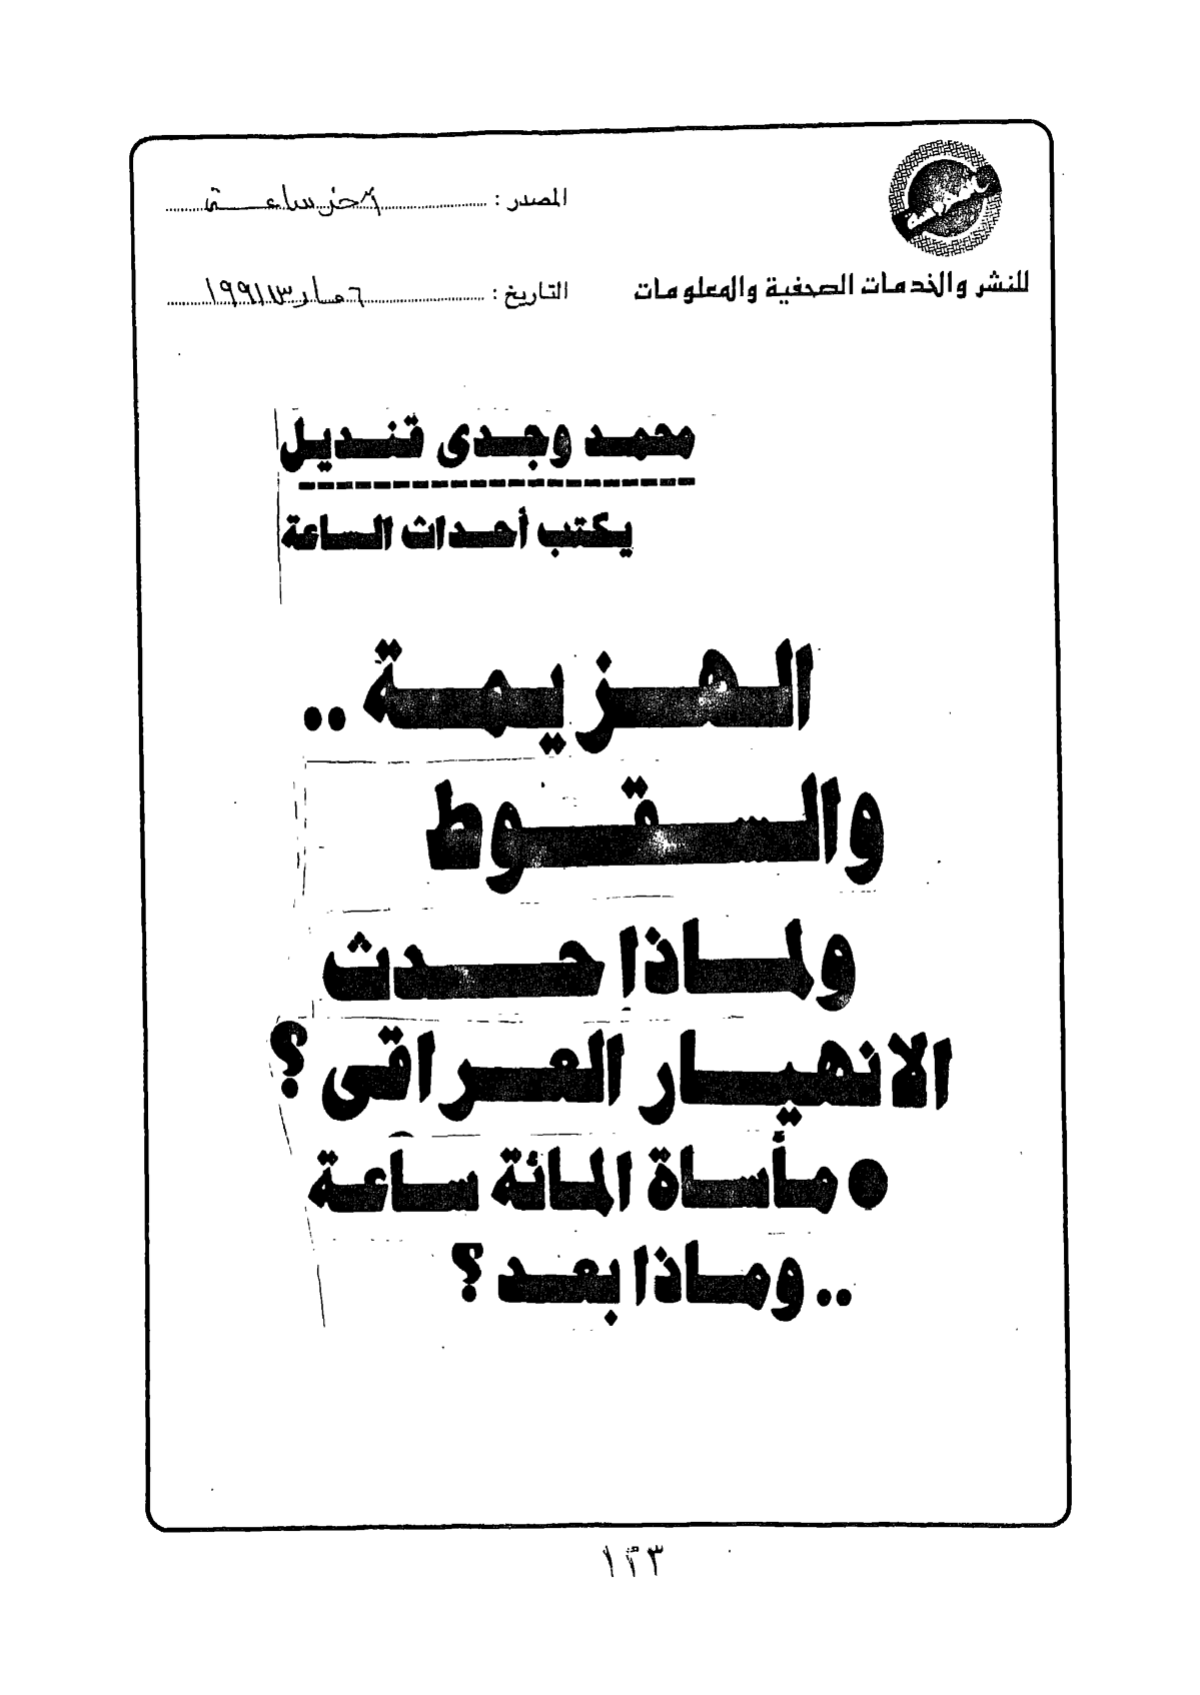 المصدر : آخر ساعة
للنشر والخدمات الصحفية والمعلومات
التاريخ : ٦ مارس ١٩٩١
محمد وجدى قنديل
يكتب أحداث الساعة
الهزيمة ..
والسقوط
ولماذا حدث
الانهيار العراقى ؟
● مأساة المائة ساعة
.. وماذا بعد ؟